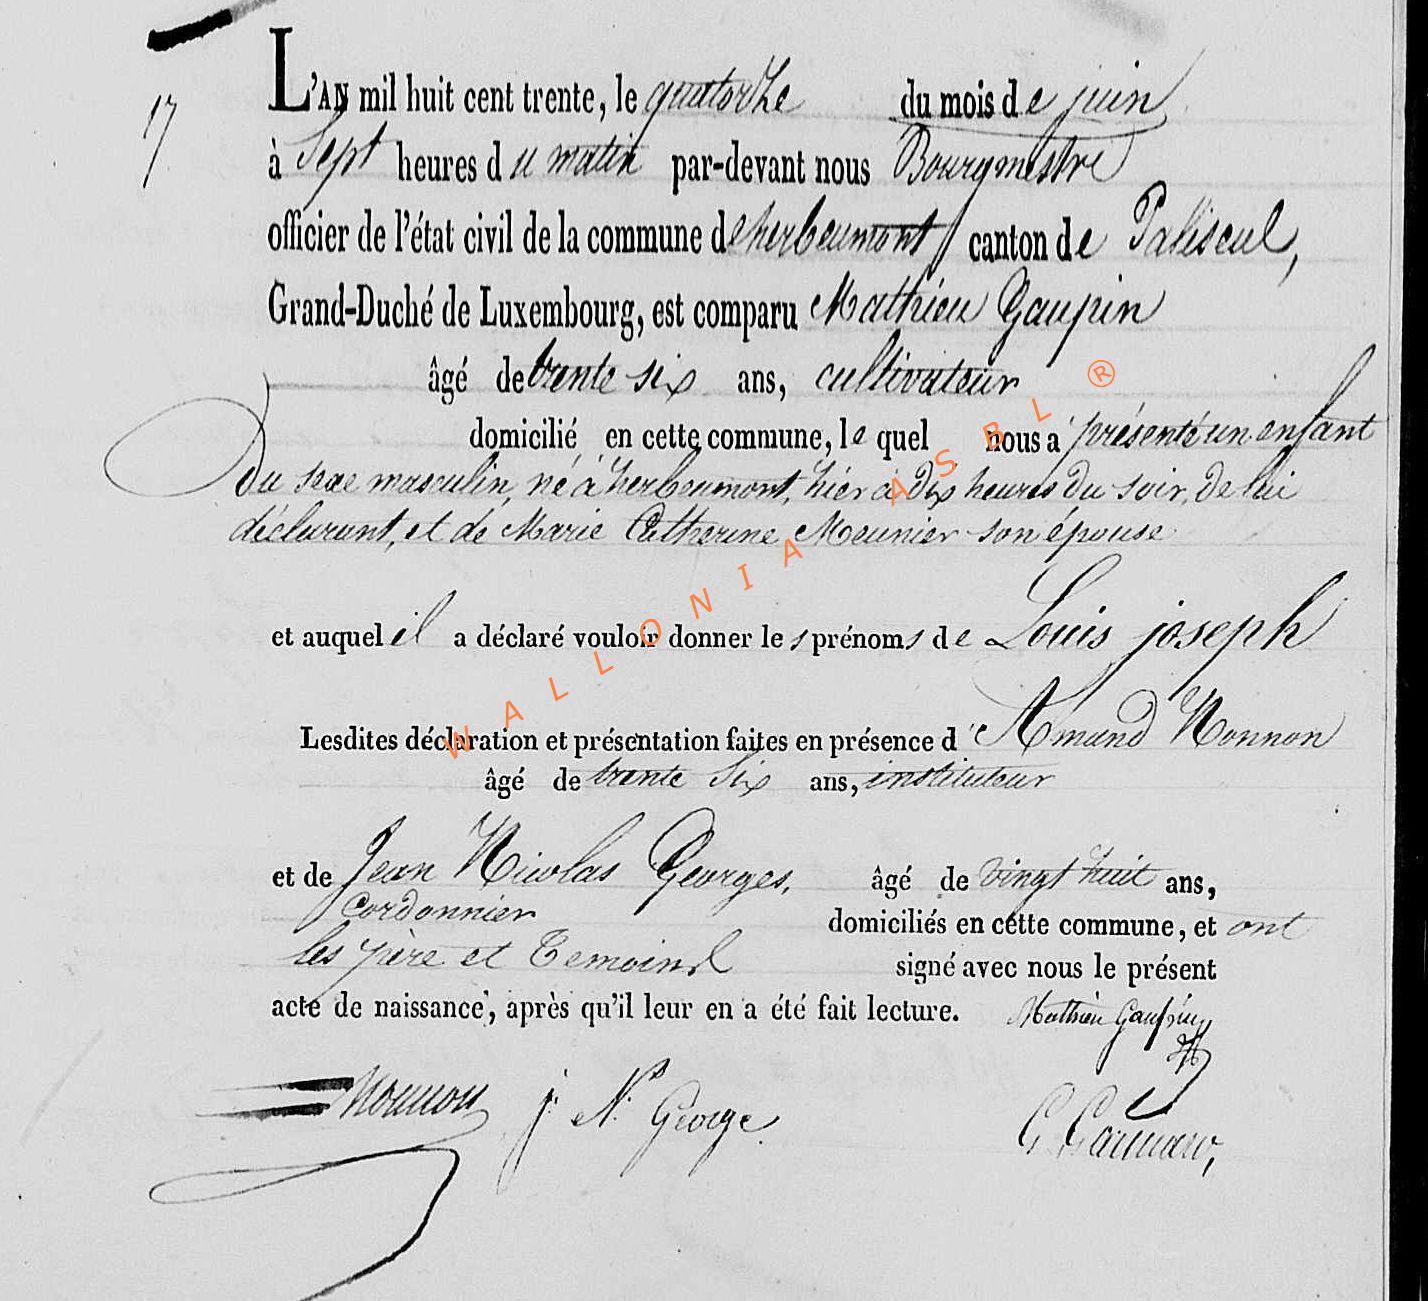 L'AN mil huit cent trente, le quatorze du mois de juin
17
à Sept heures du matin par-devant nous Bourgmestre
officier de l'état civil de la commune de herbeumont canton de Paliseul,
Grand-Duché de Luxembourg, est comparu Mathieu Gaupin
âgé de trente six ans, cultivateur
domicilié en cette commune, le quel nous a présenté un enfant
du sexe masculin, né à herbeumont, hier à dix heures du soir, de lui
déclarant, et de Marie Catherine Meunier son épouse
et auquel il a déclaré vouloir donner les prénoms de Louis joseph
Lesdites déclaration et présentation faites en présence d'Amand Nonnon
âgé de trente six ans, instituteur
et de Jean Nicolas Georges, âgé de vingt huit ans,
cordonnier domiciliés en cette commune, et ont
les père et temoins signé avec nous le présent
acte de naissance, après qu'il leur en a été fait lecture. Mathieu Gaupin
Nonnon j. N. George
WALLONIA ASBL ®